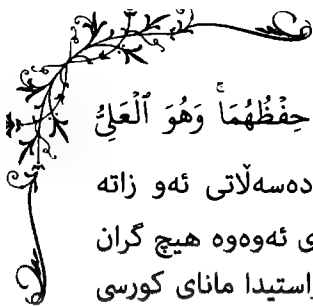 حِفْظُهُمَا ۚ وَهُوَ ٱلْعَلِىُّ
دەسەڵاتی ئەو زاتە
ی ئەوەوە هیچ گران
ڕاستیدا مانای کورسی